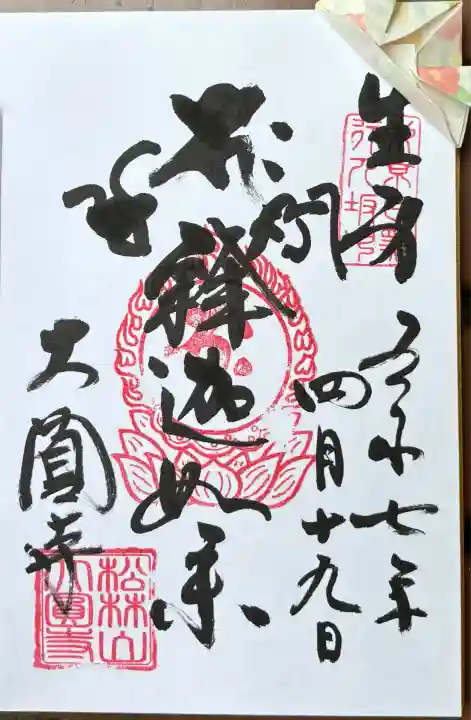 生身
行人坂
令和七年
四月十九日
釋迦如来
大圓寺
松林山
大圓寺